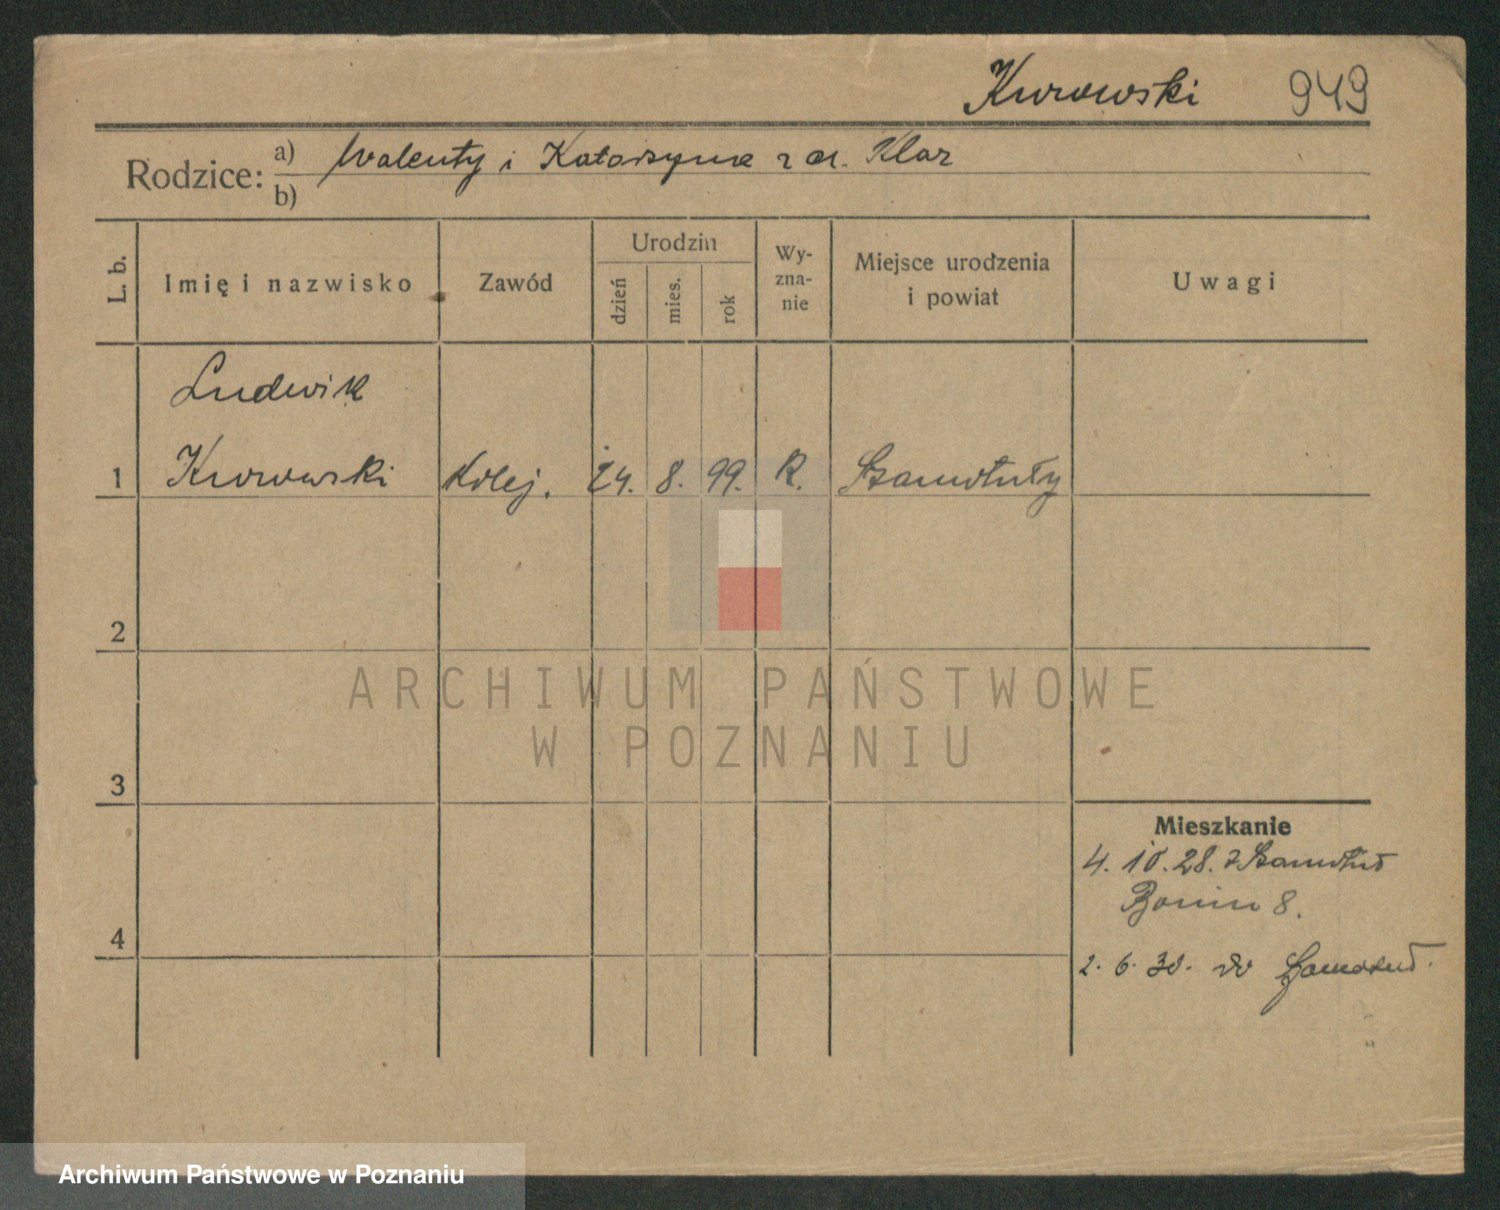 Kurowski 949
Rodzice: a) Walenty i Katarzyna z d. Klar
b)
L. b. Imię i nazwisko Zawód Urodzin dzień mies. rok Wy-zna-nie Miejsce urodzenia i powiat Uwagi
Ludwik
1 Kurowski Kolej. 24. 8. 99. R. Szamotuły
2
ARCHIWUM PAŃSTWOWE
W POZNANIU
3
Mieszkanie
4. 10. 28. z Szamotuł
Bonin 8.
4
2. 6. 30. do Szamotuł.
Archiwum Państwowe w Poznaniu